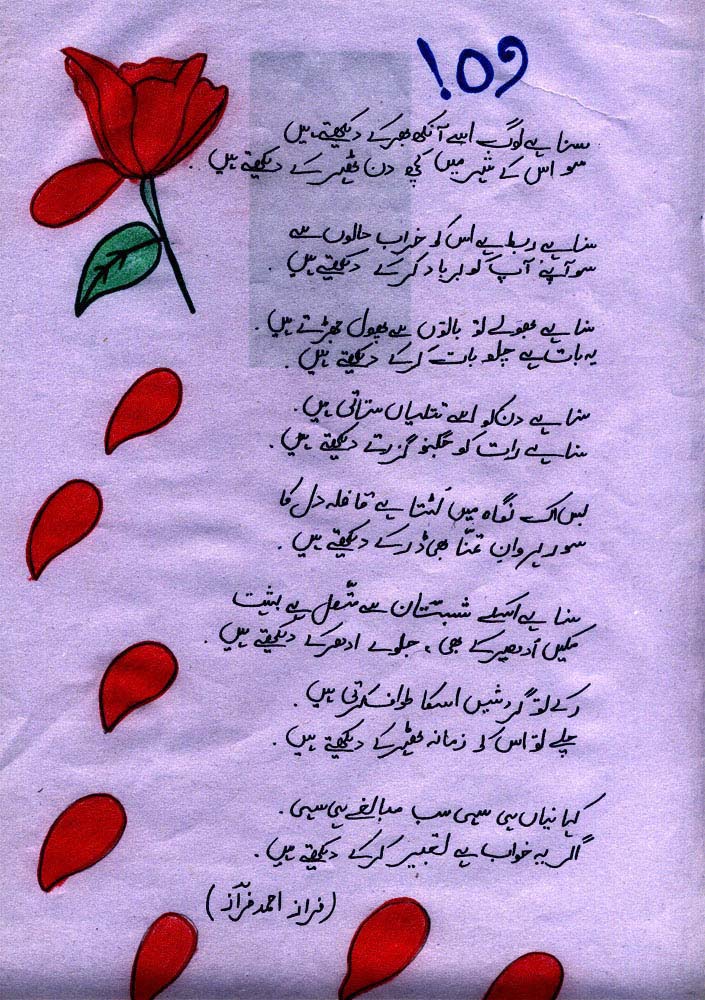 وہ!
سنا ہے لوگ اسے آنکھ بھر کے دیکھتے ہیں
سو اس کے شہر میں کچھ دن ٹھہر کے دیکھتے ہیں.
سنا ہے ربط ہے اس کو خراب حالوں سے
سو اپنے آپ کو برباد کر کے دیکھتے ہیں.
سنا ہے بولے تو باتوں سے پھول جھڑتے ہیں.
یہ بات ہے چلو بات کر کے دیکھتے ہیں.
سنا ہے دن کو اسے تتلیاں ستاتی ہیں.
سنا ہے رات کو جگنو گزرتے دیکھتے ہیں.
بس اک نگاہ میں لٹتا ہے قافلہ دل کا
سو رہروانِ تمنّا بھی ڈر کے دیکھتے ہیں.
سنا ہے اسکے شبستان سے متّصل ہے بہشت
مکیں اُدھر کے بھی، جلوے ادھر کے دیکھتے ہیں.
رکے تو گردشیں اسکا طواف کرتی ہیں.
چلے تو اس کو زمانہ ٹھہر کے دیکھتے ہیں.
کہانیاں ہی سہی سب مبالغے ہی سہی.
اگر یہ خواب ہے تعبیر کر کے دیکھتے ہیں.
(فراز احمد فرآز)